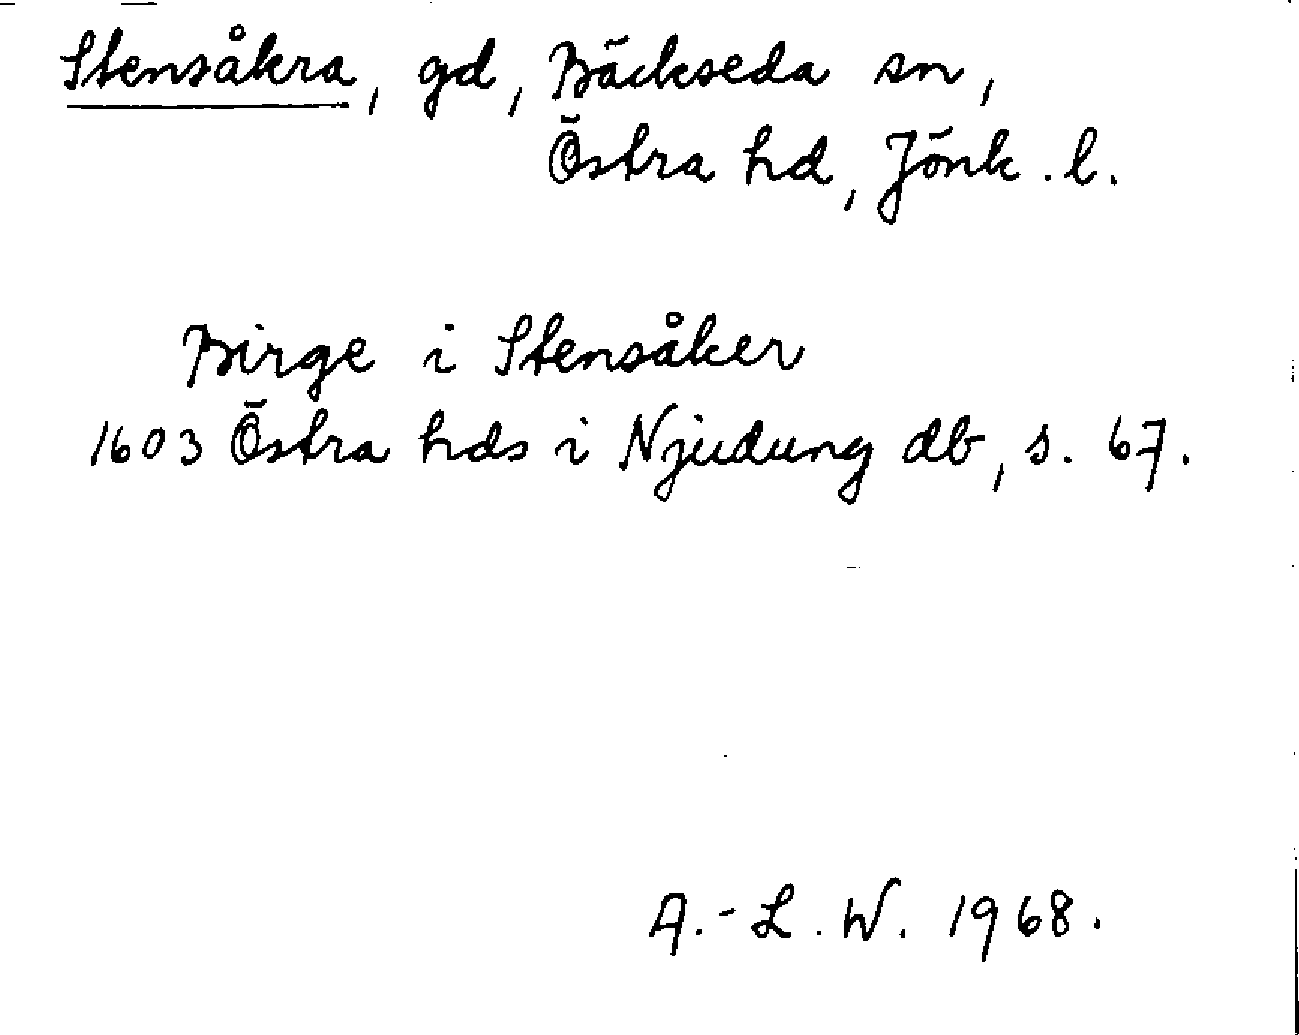 Stensåkra, gd, Bäckseda sn,
Östra hd, Jönk. l.
Birge i Stensåker
1603 Östra hds i Njudung db, s. 67.
A.-L. W. 1968.